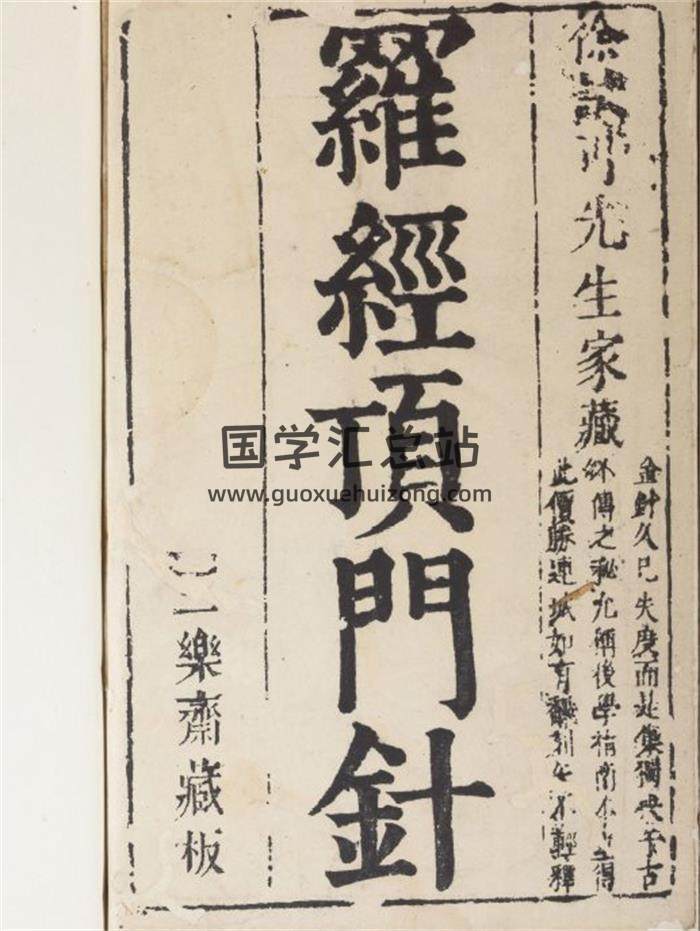 徐試可先生家藏
金針久已失度而是集獨千古
不傳之秘允稱後學指南得
此價勝連城如有翻刻不輕釋
羅經頂門針
三樂齋藏板
国学汇总站
www.guoxuehuizong.com